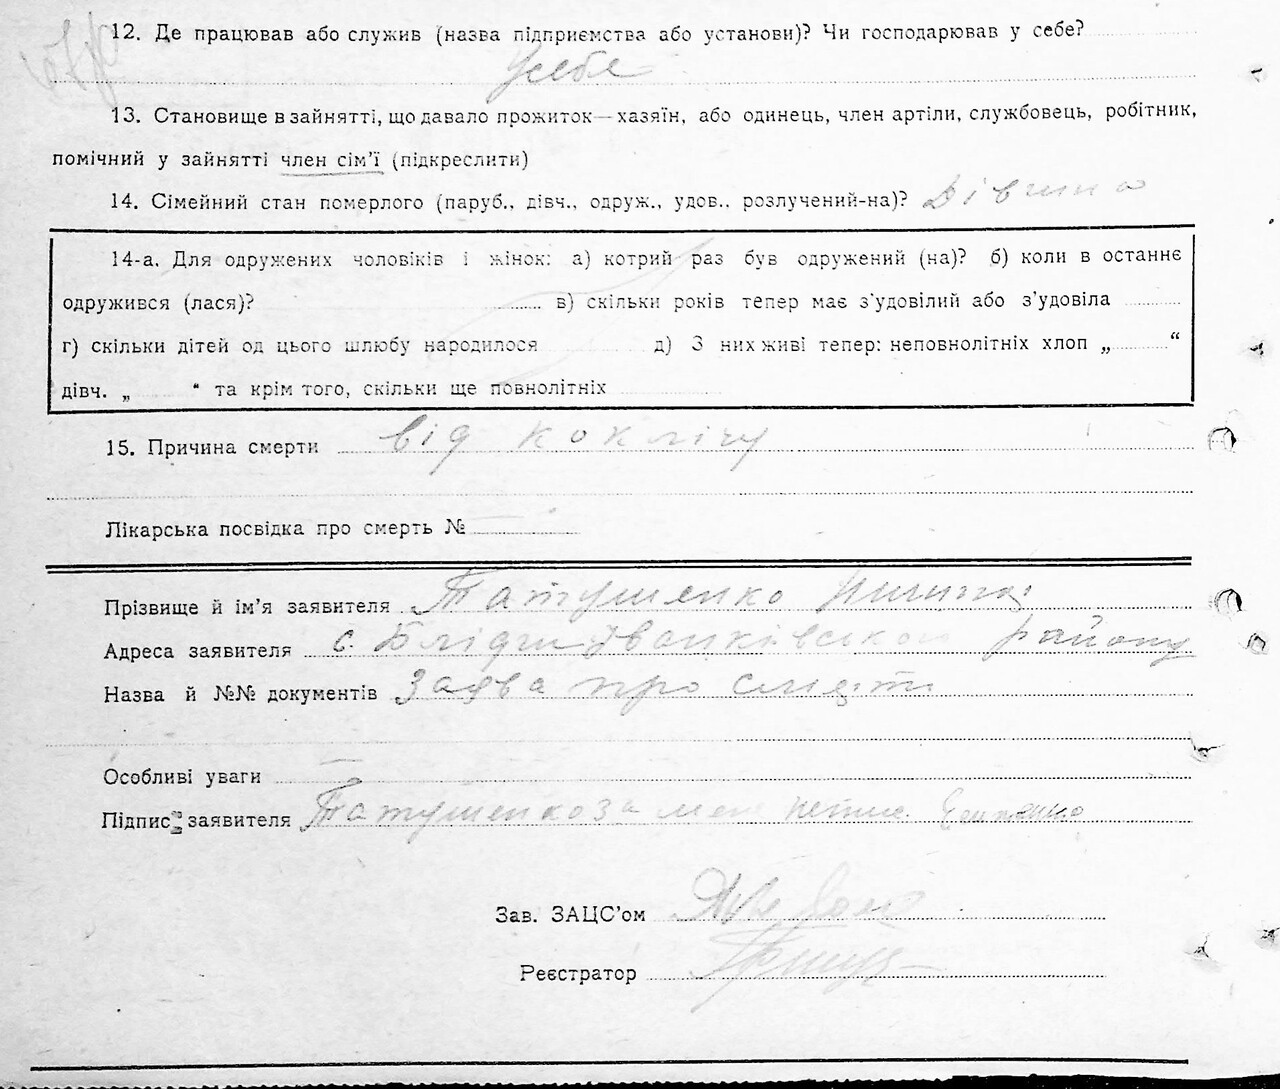 12. Де працював або служив (назва підприємства або установи)? Чи господарював у себе?
У себе
13. Становище в зайнятті, що давало прожиток—хазяїн, або одинець, член артіли, службовець, робітник,
помічний у зайнятті член сім’ї (підкреслити)
14. Сімейний стан померлого (паруб., дівч., одруж., удов., розлучений-на)? Дівчина
14-а. Для одружених чоловіків і жінок: а) котрий раз був одружений (на)? б) коли в останнє
одружився (лася)? в) скільки років тепер має з’удовілий або з’удовіла
г) скільки дітей од цього шлюбу народилося д) З них живі тепер: неповнолітніх хлоп „ “
дівч. „ “ та крім того, скільки ще повнолітніх
15. Причина смерти від коклюшу
Лікарська посвідка про смерть №
Прізвище й ім’я заявителя Татушенко
Адреса заявителя с. Блідча Іванківського району
Назва й №№ документів Заява про смерть
Особливі уваги
Підпис заявителя Татушенко за
Зав. ЗАЦС’ом
Реєстратор